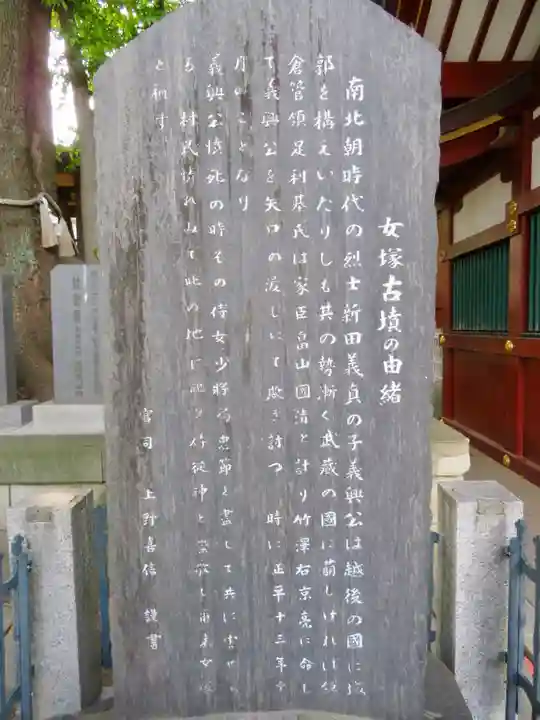 女塚古墳の由緒
南北朝時代の烈士新田義貞の子義興公は越後の國に城
郭を構えいたりしも其の勢漸く武蔵の國に萌しければ鎌
倉管領足利基氏は家臣畠山國清と計り竹澤右京亮に命し
て義興公を矢口の渡しにて欺き討つ 時に正平十三年十
月のことなり
義興公憤死の時その侍女少将局忠節を盡して共に害せら
る 村民憐れみて此の地に祀り従神と崇敬し爾来女塚
と称す
宮司 上野喜信 謹書